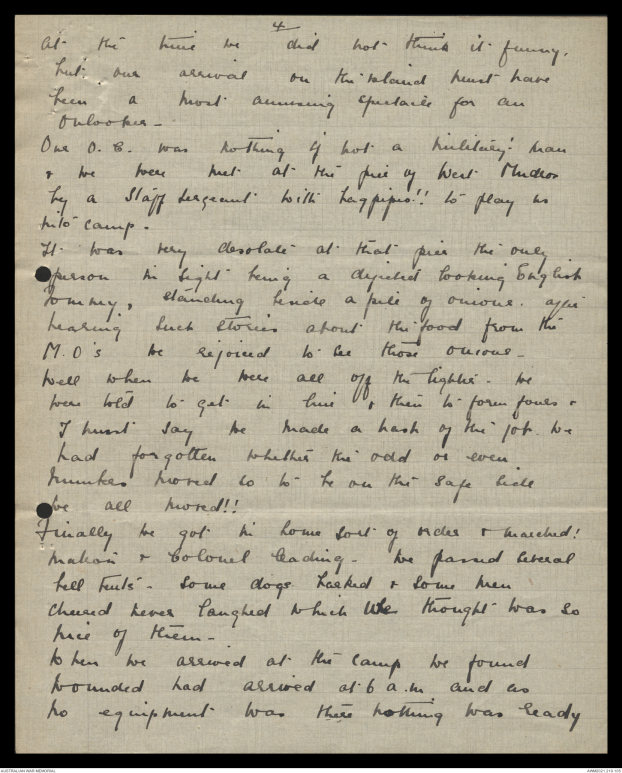 4
At the time we did not think it funny,
but our arrival on the island must have
been a most amusing spectacle for an
onlooker -
Our O. C. was nothing if not a military man
& we were met at the pier of West Mudros
by a Staff Sergeant with bagpipes!! to play us
into camp -
It was very desolate at that pier the only
person in sight being a dejected looking English
Tommy, standing beside a pile of onions. after
hearing such stories about the food from the
M.O's we rejoiced to see those onions -
Well when we were all off the lighter - we
were told to get in line & then to form fours &
I must say we made a hash of the job. We
had forgotten whether the odd or even
numbers moved so to be on the safe side
we all moved!!
Finally we got in some sort of order & marched!
Matron & Colonel leading - We passed several
bell tents - some dogs barked & some men
cheered never laughed which we thought was so
nice of them -
When we arrived at the camp we found
wounded had arrived at 6 a.m. and as
no equipment was there nothing was ready
AUSTRALIAN WAR MEMORIAL